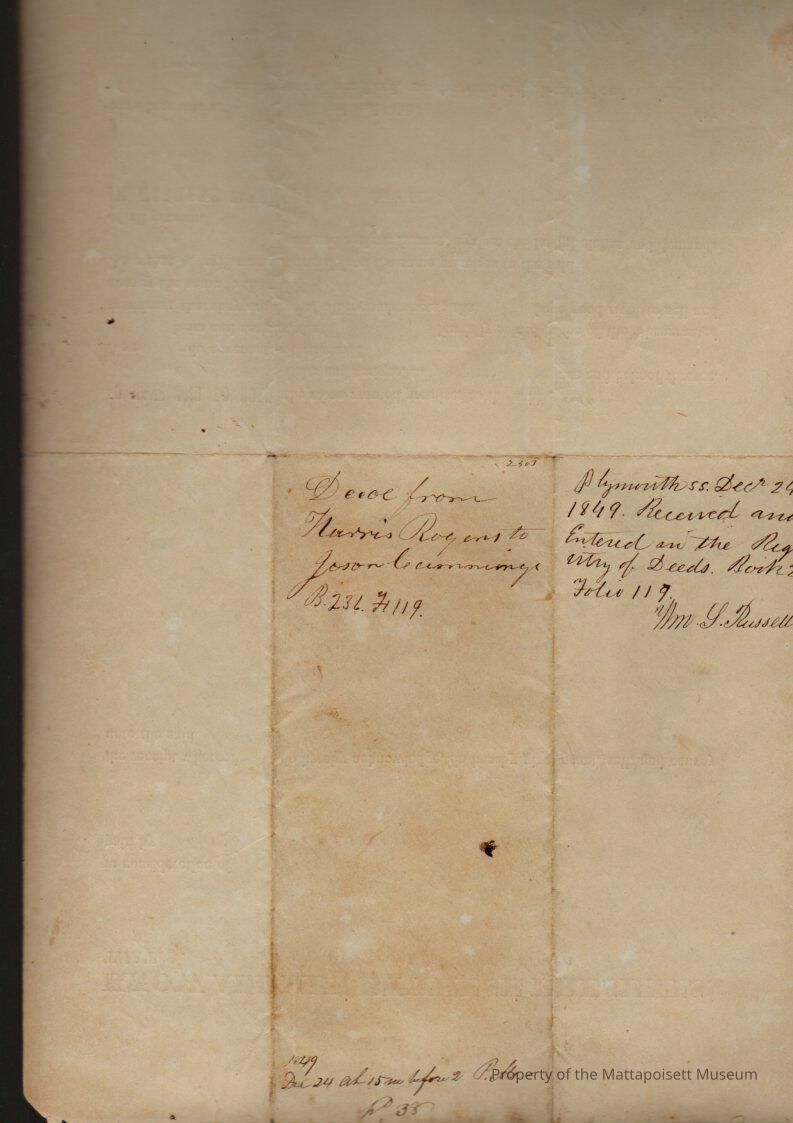 Deed from
Harris Rogers to
Jason Cummings
B. 236. F 119.
Plymouth ss. Decr 24
1849. Received and
Entered in the Reg
istry of Deeds. Book 2
Folio 119.
Wm. S. Russell
1849
Dec 24 at 15 m before 2 P. M.
Property of the Mattapoisett Museum